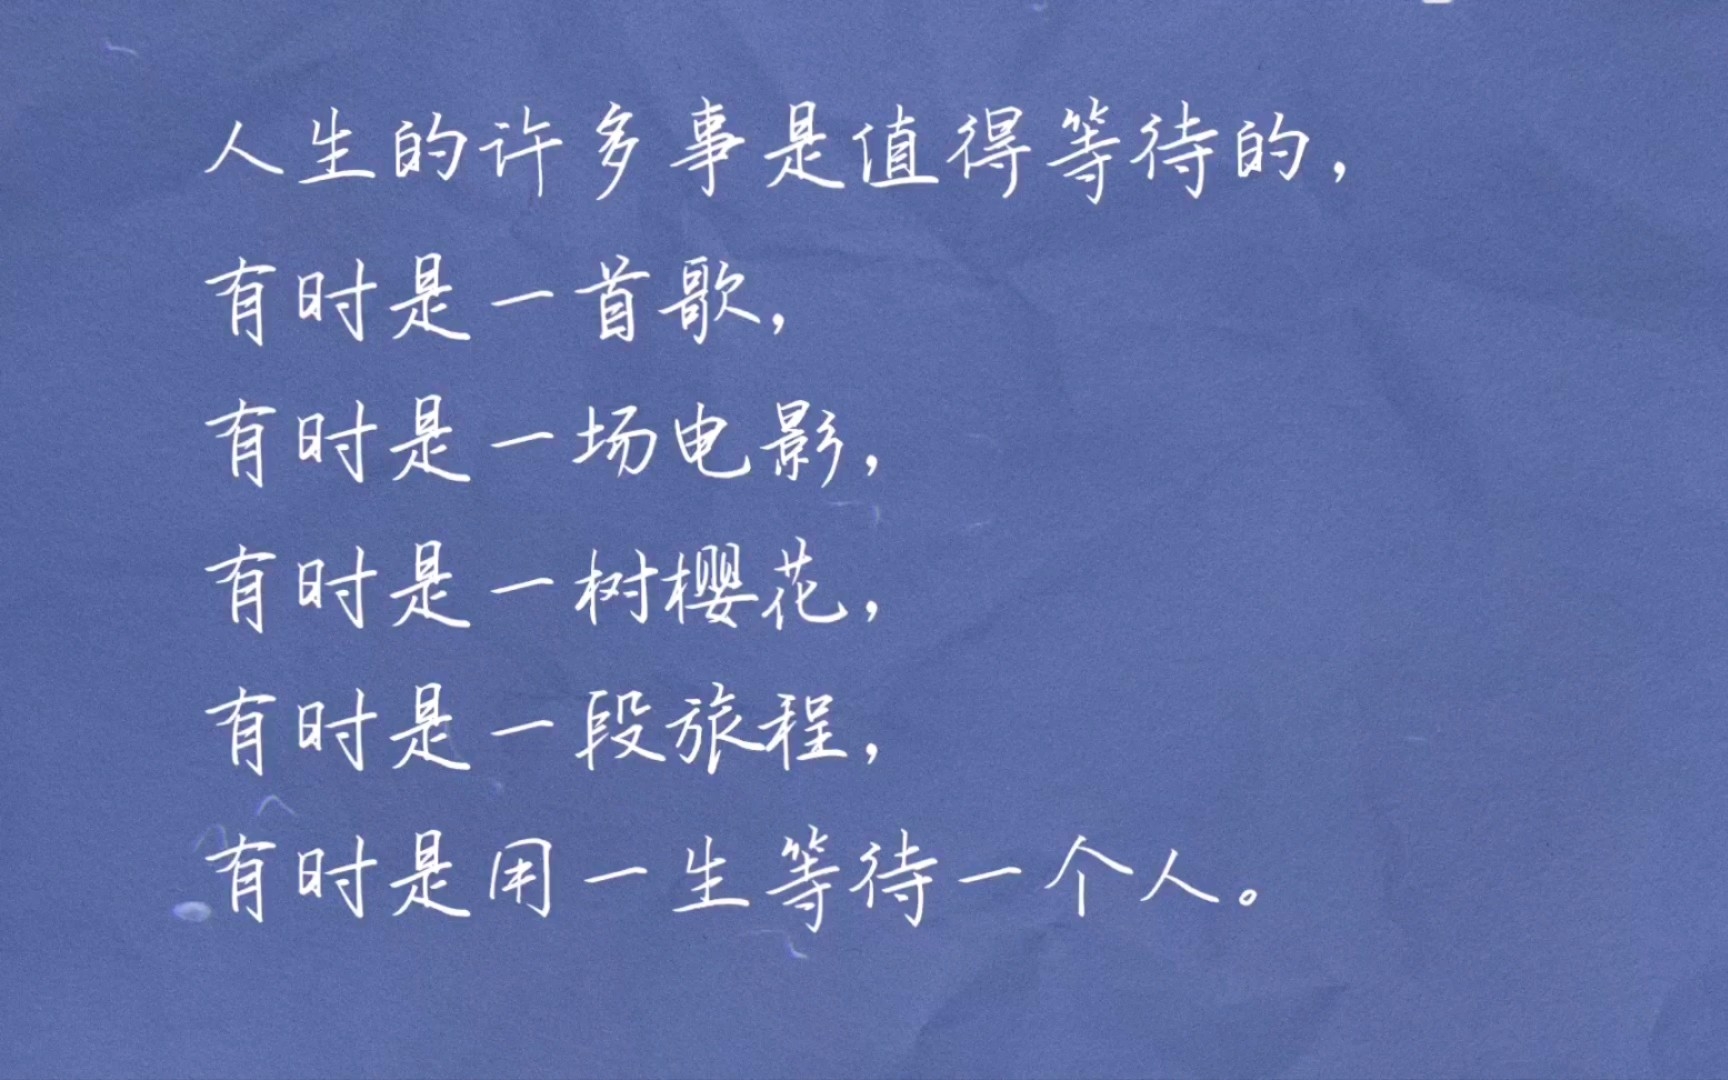 人生的许多事是值得等待的，
有时是一首歌，
有时是一场电影，
有时是一树樱花，
有时是一段旅程，
有时是用一生等待一个人。